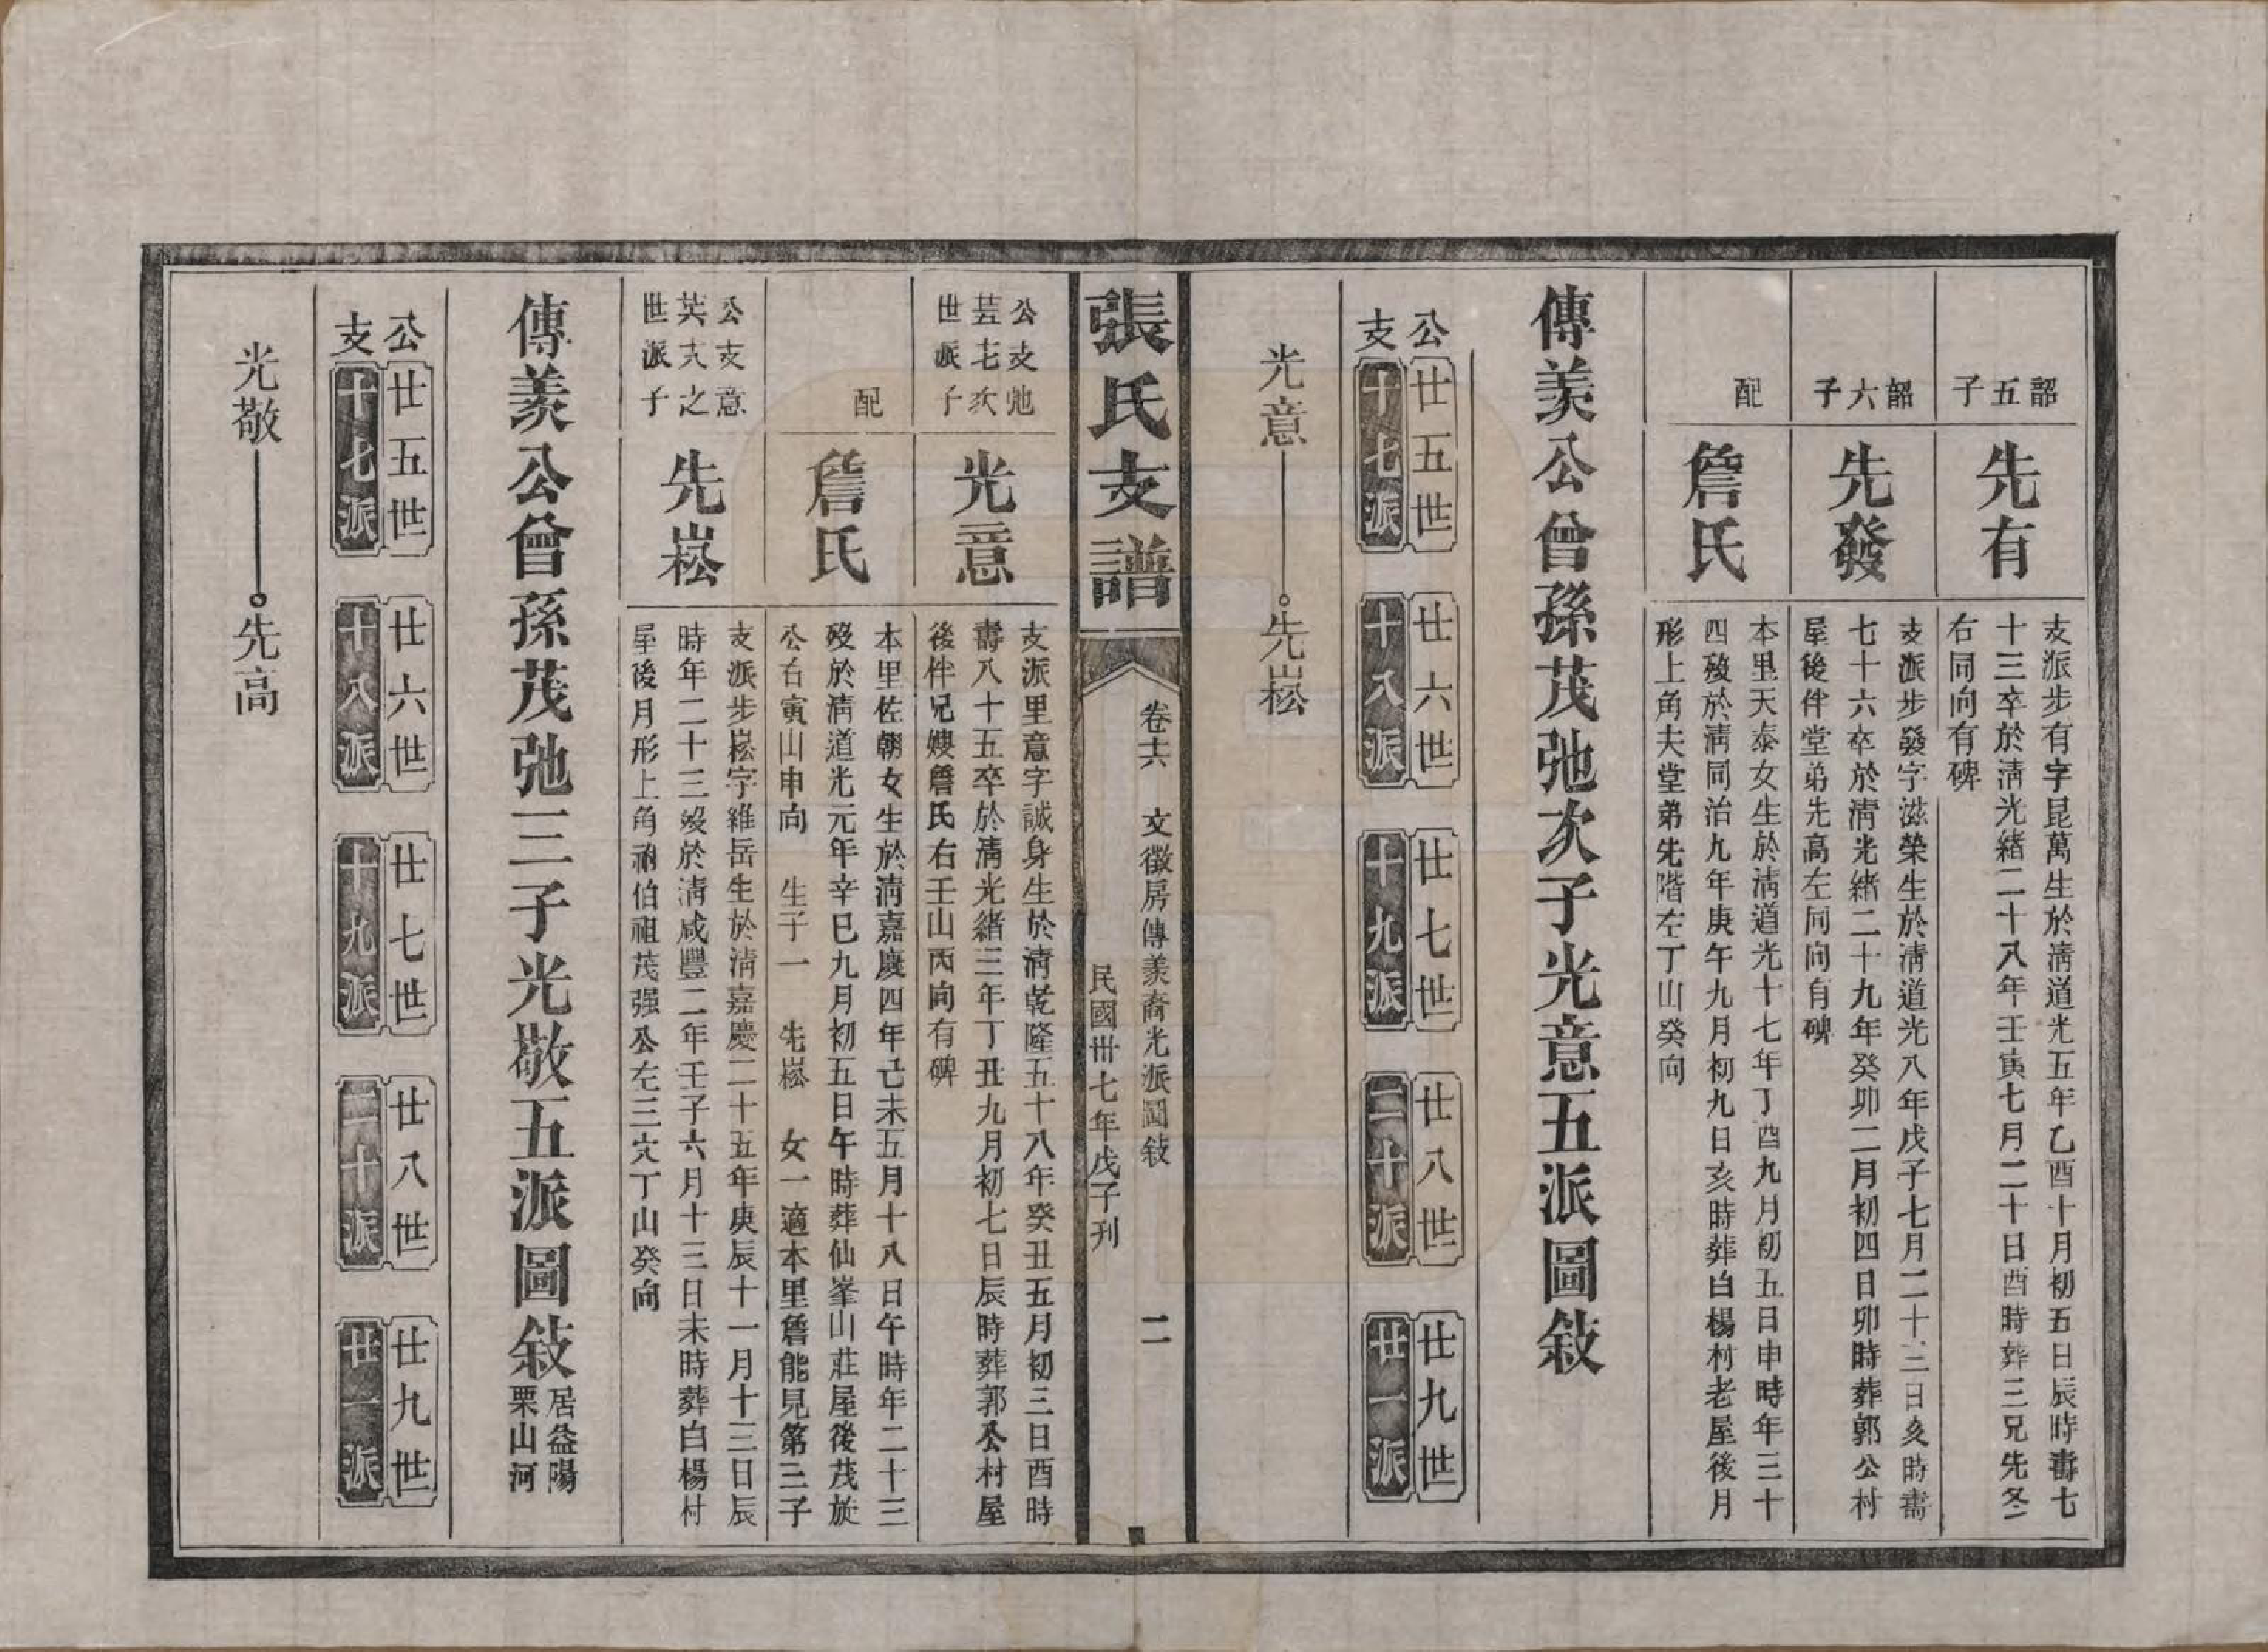 韶五子
先有
支派步有字昆萬生於清道光五年乙酉十月初五日辰時壽七
十三卒於清光緒二十八年壬寅七月二十日酉時葬三兄先冬
右同向有碑
韶六子
先發
支派步發字滋榮生於清道光八年戊子七月二十三日亥時壽
七十六卒於清光緒二十九年癸卯二月初四日卯時葬郭公村
屋後伴堂弟先高左同向有碑
配
詹氏
本里天泰女生於清道光十七年丁酉九月初五日申時年三十
四歿於清同治九年庚午九月初九日亥時葬白楊村老屋後月
形上角夫堂弟先階左丁山癸向
傳羨公曾孫茂弛次子光意五派圖敍
公支
廿五世 廿六世 廿七世 廿八世 廿九世
十七派 十八派 十九派 二十派 廿一派
光意 先崧
張氏支譜
卷六 文徵房傳羨裔光派圖敍 二
民國卅七年戊子刊
公支弛
芸七次
世派子
光意
支派里意字誠身生於清乾隆五十八年癸丑五月初三日酉時
壽八十五卒於清光緒三年丁丑九月初七日辰時葬郭公村屋
後伴兄嫂詹氏右壬山丙向有碑
配
詹氏
本里佐朝女生於清嘉慶四年己未五月十八日午時年二十三
歿於清道光元年辛巳九月初五日午時葬仙峯山莊屋後茂於
公右寅山申向 生子一 先崧 女一適本里詹能見第三子
公支意
英大之
世派子
先崧
支派步崧字維岳生於清嘉慶二十五年庚辰十一月十三日辰
時年二十三歿於清咸豐二年壬子六月十三日未時葬白楊村
屋後月形上角祔伯祖茂强公左三穴丁山癸向
傳羨公曾孫茂弛三子光敬五派圖敍
居益陽
栗山河
公支
廿五世 廿六世 廿七世 廿八世 廿九世
十七派 十八派 十九派 二十派 廿一派
光敬 先高